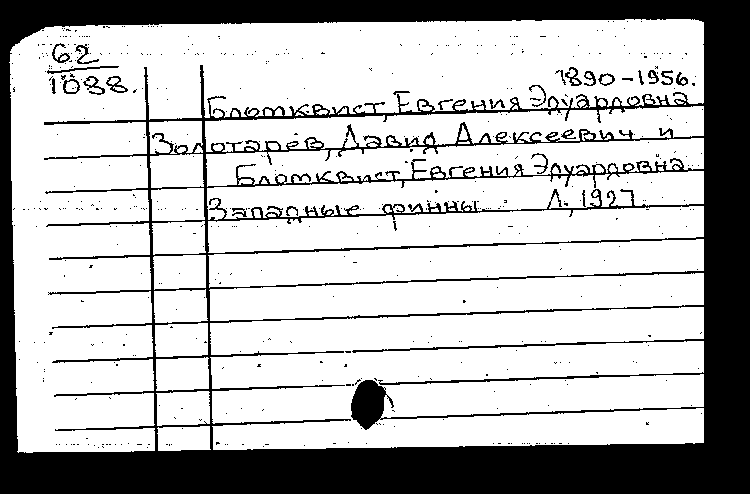 62
1088.
1890-1956.
Бломквист, Евгения Эдуардовна
Золотарев, Давид Алексеевич и
Бломквист, Евгения Эдуардовна.
Западные финны. Л., 1927.